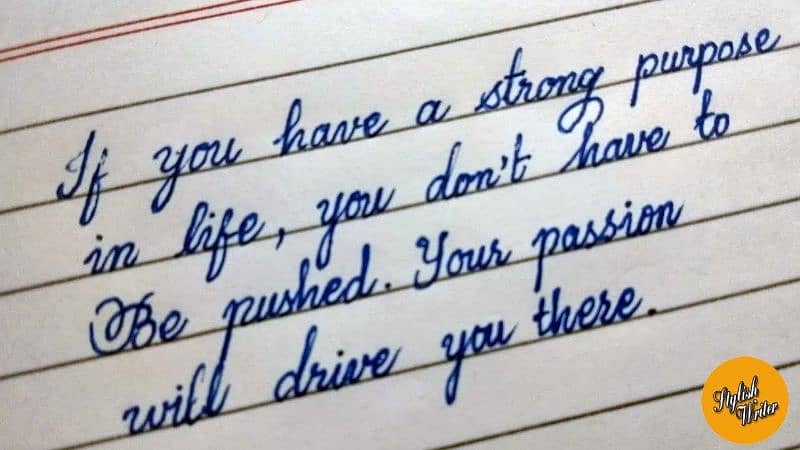 If you have a strong purpose
in life, you don't have to
Be pushed. Your passion
will drive you there.
Stylish
Writer